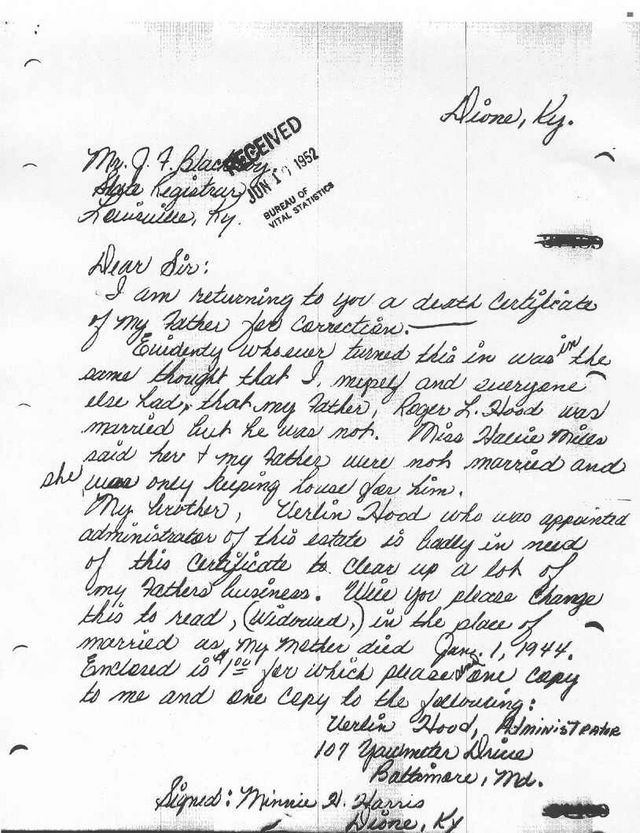 Dione, Ky.
Mr. J. F. Blackerby
State Registrar
Louisville, Ky.
RECEIVED
JUN 1 1952
BUREAU OF
VITAL STATISTICS
Dear Sir:
I am returning to you a death certificate
of my Father for correction.
Evidenty whoever turned this in was in the
same thought that I, myself and everyone
else had, that my Father, Roger L. Hood was
married but he was not. Miss Hallie Miles
said her + my Father were not married and
she was only keeping house for him.
My brother, Verlin Hood who was appointed
administrator of this estate is badly in need
of this certificate to clear up a lot of
my Fathers business. Will you please change
this to read, (widowed,) in the place of
married as my mother died Jan. 1, 1944.
Enclosed is $1.00 for which please send one copy
to me and one copy to the following:
Verlin Hood, Administrator
107 Drive
Baltimore, Md.
Signed: Minnie H. Harris
Dione, Ky